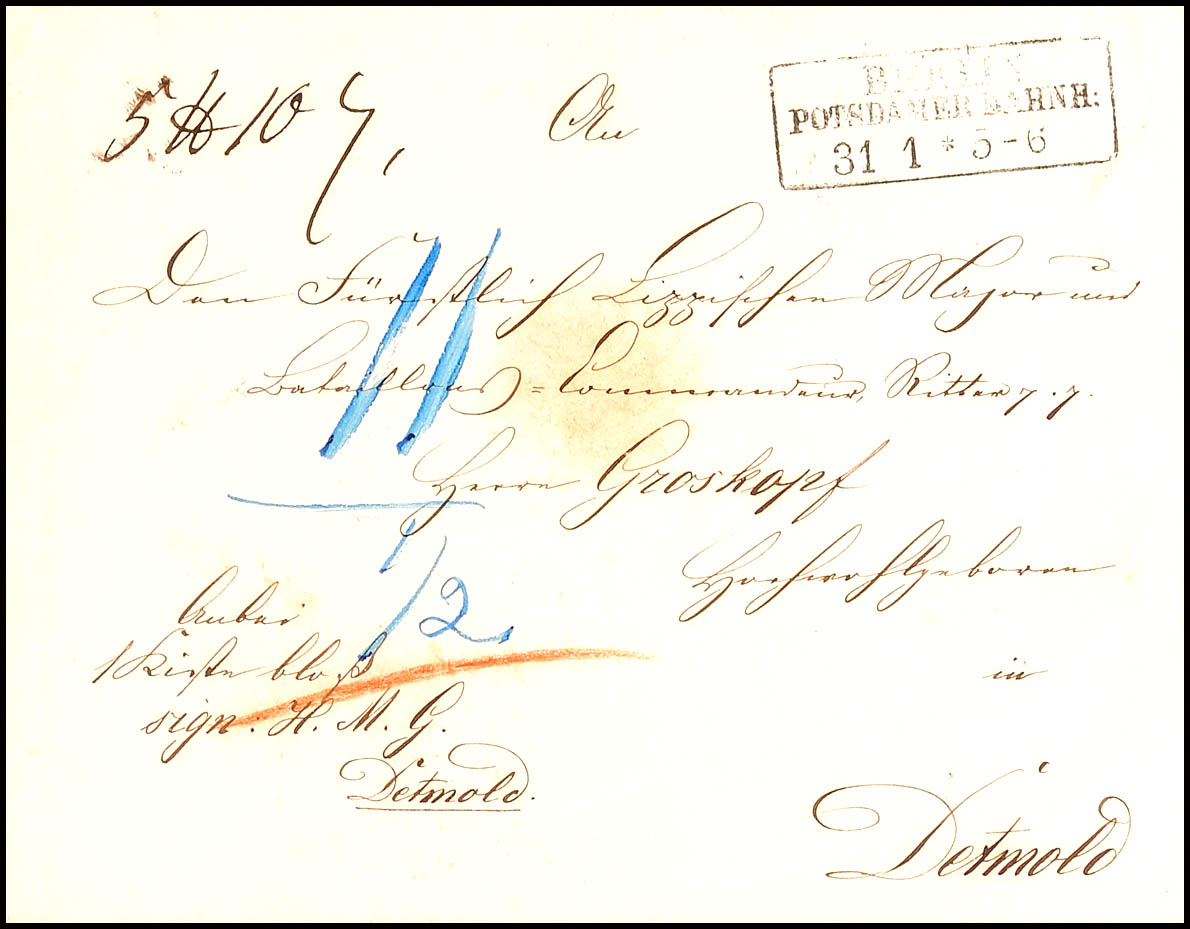 5 ℔ 10
An
BERLIN
POTSDAMER BAHNH:
31 1 * 5-6
Den Fürstlich Lippischen Major und
Bataillons = Commandeur, Ritter p. p.
Herrn Groskopf
Hochwohlgeboren
11
1/2
Anbei
1 Kiste bloß
sign: H. M. G.
Detmold.
in
Detmold